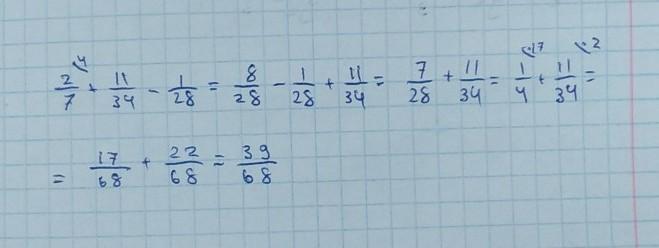 2/7 ⁴ + 11/34 - 1/28 = 8/28 - 1/28 + 11/34 = 7/28 + 11/34 = 1/4 ·17 + 11/34 ·2 =
= 17/68 + 22/68 = 39/68